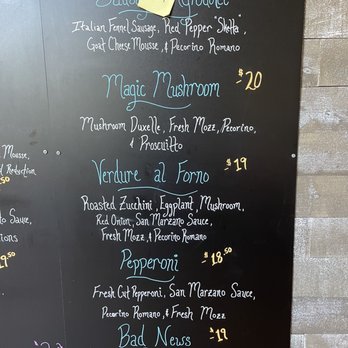 Italian Fennel Sausage, Red Pepper "Sketta",
Goat Cheese Mousse, & Pecorino Romano
Magic Mushroom $20
Mushroom Duxelle, Fresh Mozz, Pecorino,
& Proscuitto
Mousse,
Verdure al Forno $19
Reduction
Roasted Zucchini, Eggplant, Mushroom,
Red Onion, San Marzano Sauce,
Fresh Mozz, & Pecorino Romano
Sauce,
Pepperoni $18.50
Fresh Cut Pepperoni, San Marzano Sauce,
Pecorino Romano, & Fresh Mozz
Bad News $19